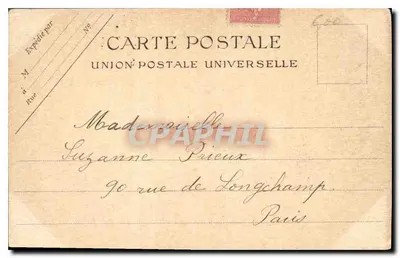 Expédié par
M
à
Rue
No
CARTE POSTALE
UNION POSTALE UNIVERSELLE
Mademoiselle
Suzanne Prieux
90 rue de Longchamp
Paris
CPAPHIL